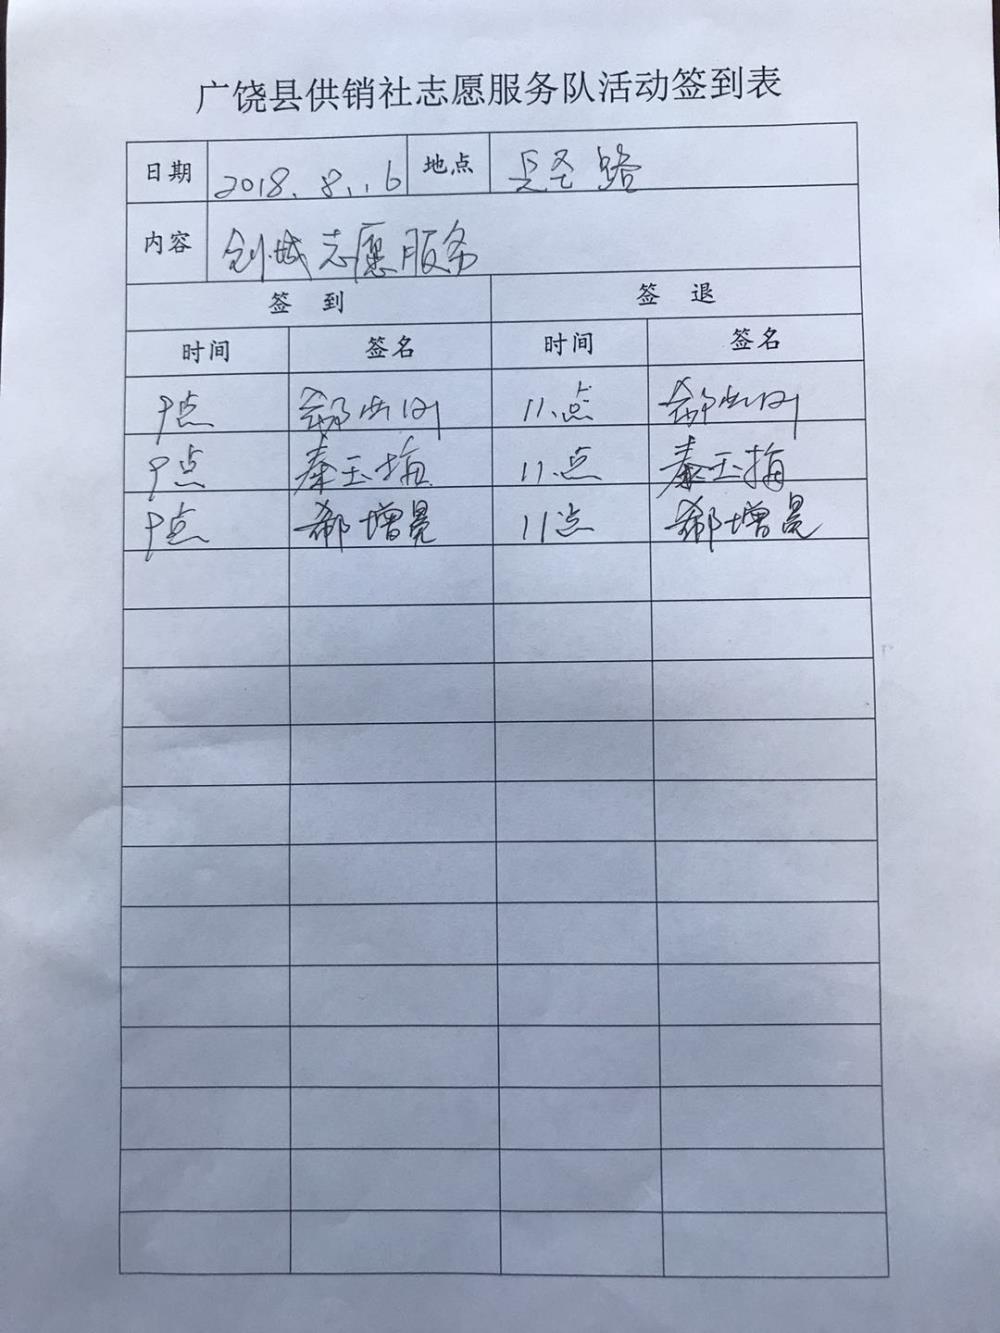 广饶县供销社志愿服务队活动签到表
日期 2018.8.16 地点 兵圣路
内容 创城志愿服务
签 到 签 退
时间 签名 时间 签名
9点 11.点
9点 秦玉梅 11.点 秦玉梅
9点 郗增晃 11点 郗增晃